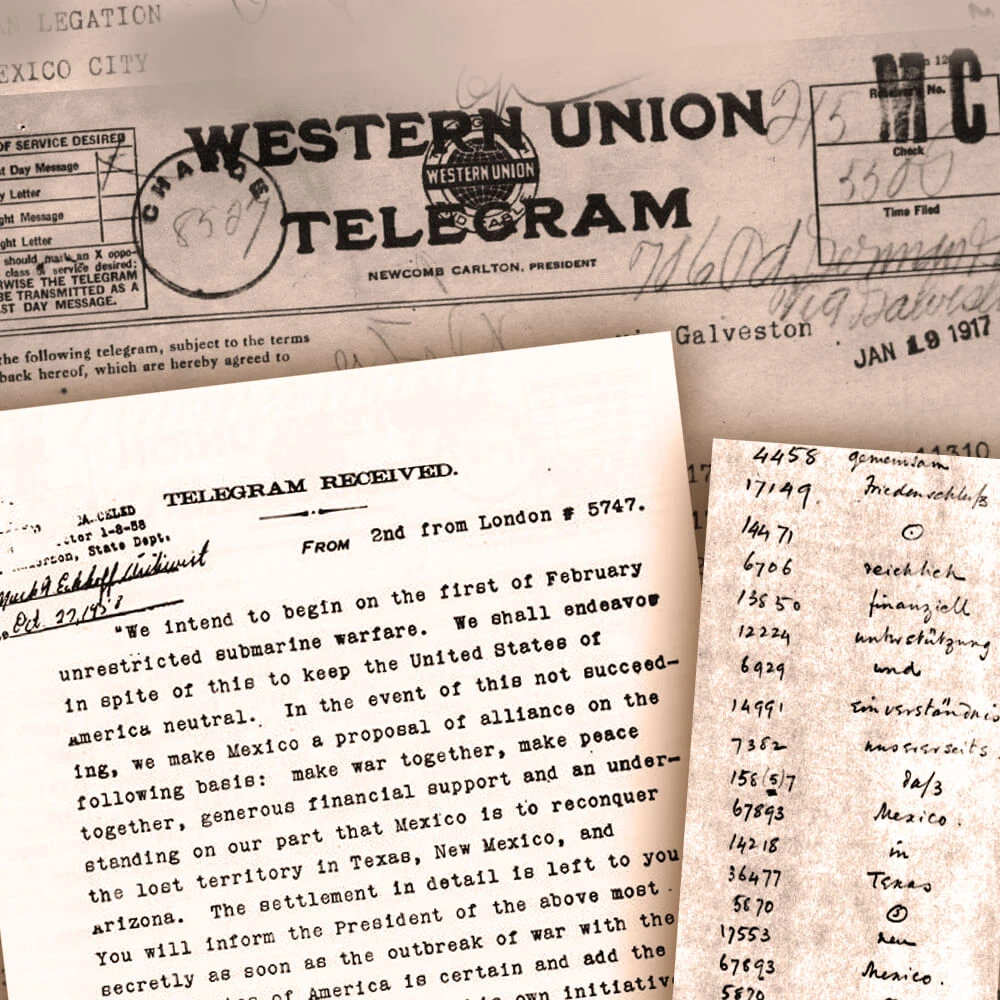 AN LEGATION
EXICO CITY
OF SERVICE DESIRED
t Day Message
y Letter
ght Message
ght Letter
should mark an X oppo-
class of service desired;
RWISE THE TELEGRAM
BE TRANSMITTED AS A
ST DAY MESSAGE.
CHARGE
8527
WESTERN UNION
WESTERN UNION
TELEGRAM
NEWCOMB CARLTON, PRESIDENT
215
MC
Receiver's No.
Check
Time Filed
via Galveston
JAN 19 1917
the following telegram, subject to the terms
back hereof, which are hereby agreed to
Galveston
TELEGRAM RECEIVED.
1-8-58
State Dept.
Oct. 27, 1958
FROM 2nd from London # 5747.
"We intend to begin on the first of February
unrestricted submarine warfare. We shall endeavor
in spite of this to keep the United States of
America neutral. In the event of this not succeed-
ing, we make Mexico a proposal of alliance on the
following basis: make war together, make peace
together, generous financial support and an under-
standing on our part that Mexico is to reconquer
the lost territory in Texas, New Mexico, and
Arizona. The settlement in detail is left to you
You will inform the President of the above most
secretly as soon as the outbreak of war with the
of America is certain and add the
own initiative
4458 gemeinsam
17149. Friedenschluß
14471 ⊙
6706 reichlich
13850 finanziell
12224 unterstützung
6929 und
14991 Einverständnis
7382 unsererseits
158(5)7 daß
67893 Mexico.
14218 in
36477 Texas
5670
17553 neu
67893 Mexico.
5870